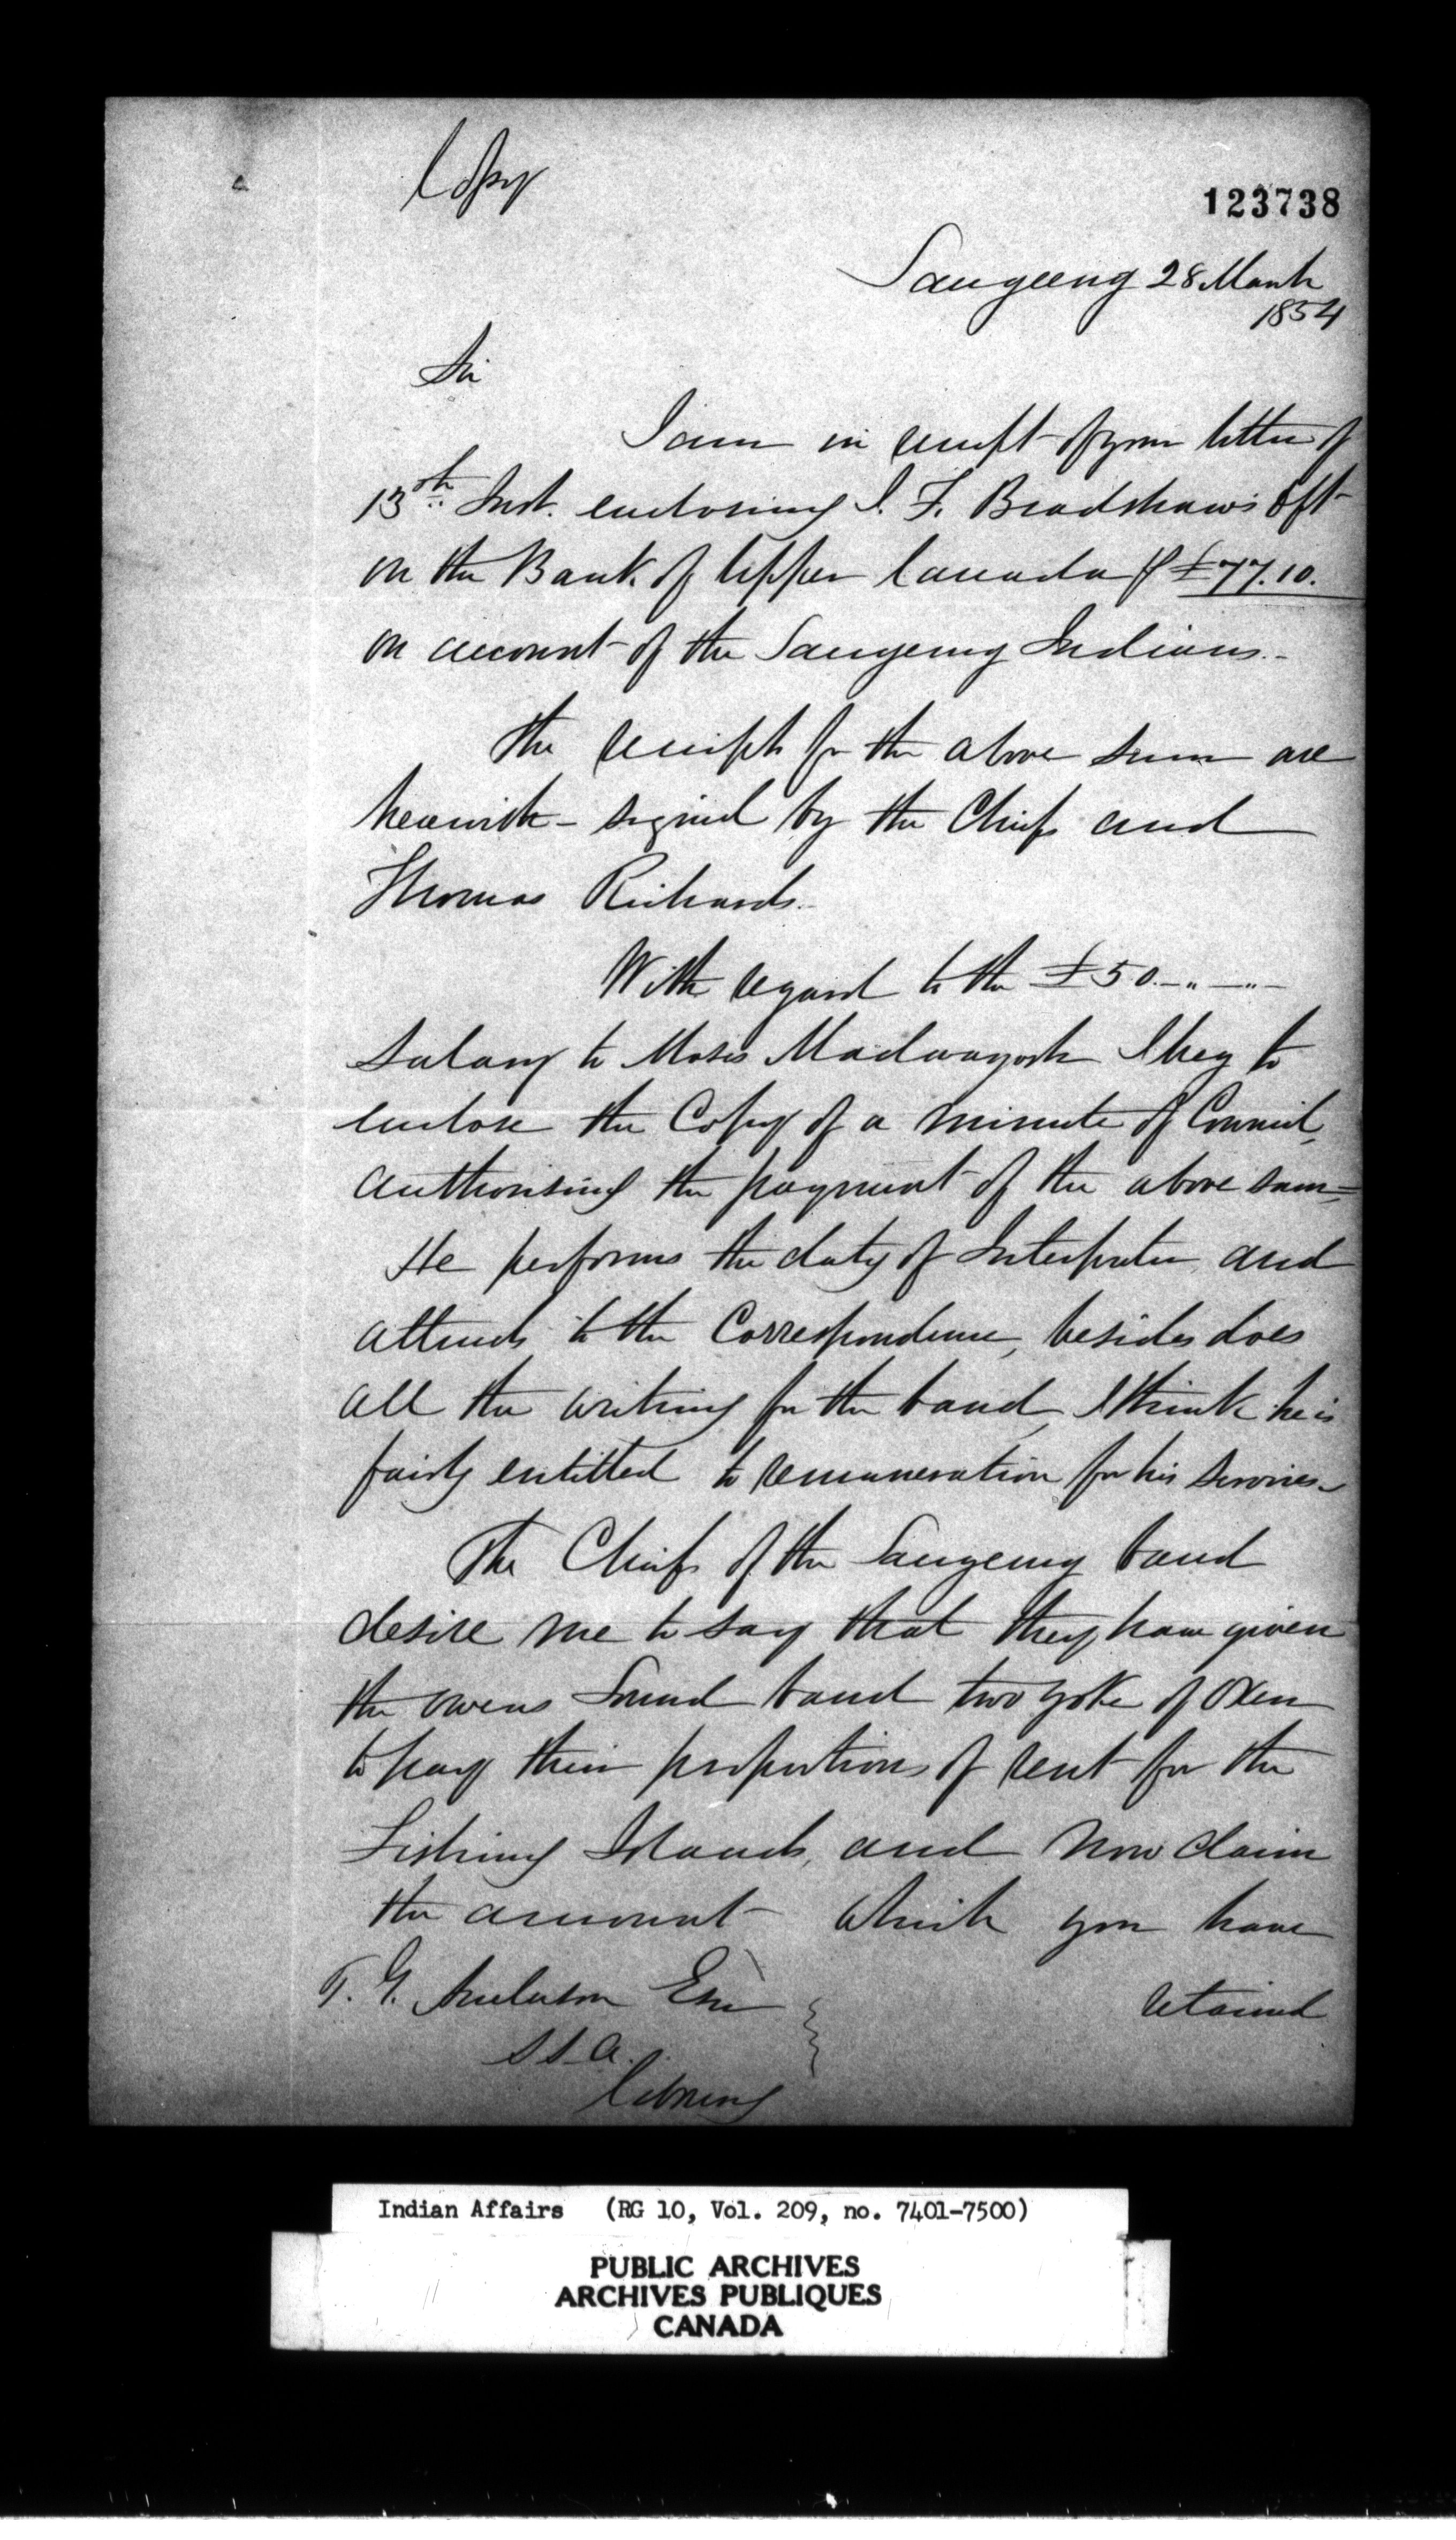 Copy
123738
Saugeeng 28 March
1854
Sir
I am in receipt of your letter of
13th Inst. enclosing J. F. Bradshaw's Dft
on the Bank of Upper Canada for £77.10.
on account of the Saugeeng Indians.
The receipts for the above sum are
herewith signed by the Chiefs and
Thomas Richards.
With regard to the £50.-"-"-
salary to Moses Madwayosh I beg to
enclose the Copy of a minute of Council,
authorising the payment of the above sum=
He performs the duty of Interpreter and
attends to the Correspondence, besides does
all the writing for the band, I think he is
fairly entitled to remuneration for his services.
The Chiefs of the Saugeeng band
desire me to say that they have given
the Owens Sound band two yoke of Oxen
to pay their proportions of rent for the
Fishing Islands, and now claim
the amount which you have
T. G. Anderson Esqr
retained
S I A.
Cobourg
Indian Affairs (RG 10, Vol. 209, no. 7401-7500)
PUBLIC ARCHIVES
ARCHIVES PUBLIQUES
CANADA